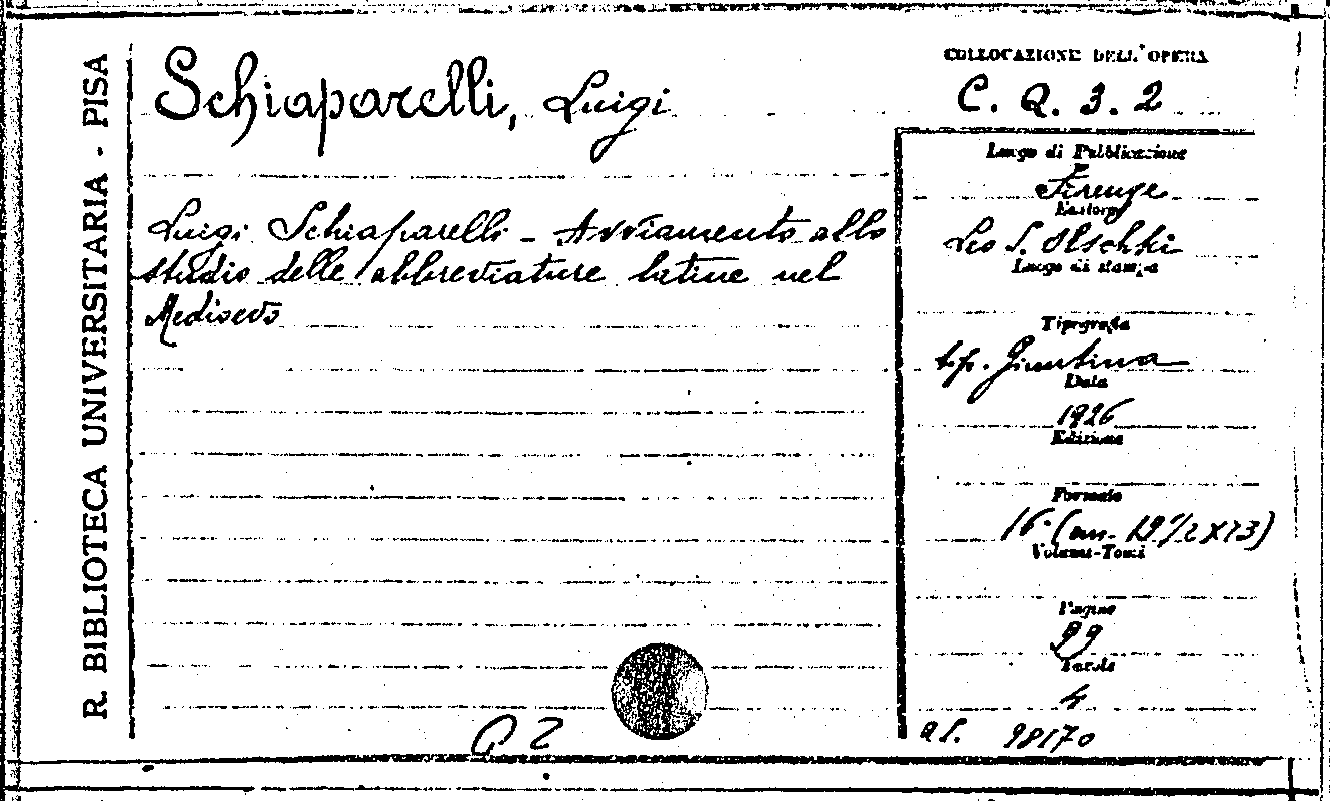 R. BIBLIOTECA UNIVERSITARIA - PISA
Schiaparelli, Luigi
Luigi Schiaparelli - Avviamento allo
studio delle abbreviature latine nel
Medioevo
COLLOCAZIONE DELL'OPERA
C. Q. 3. 2
Luogo di Pubblicazione
Firenze
Editore
Leo S. Olschki
Luogo di stampa
Tipografia
tip. Giuntina
Data
1926
Edizione
Formato
16° (cm. 19 1/2 x 13)
Volumi-Tomi
Pagine
99
Tavole
4
98170
Q 2